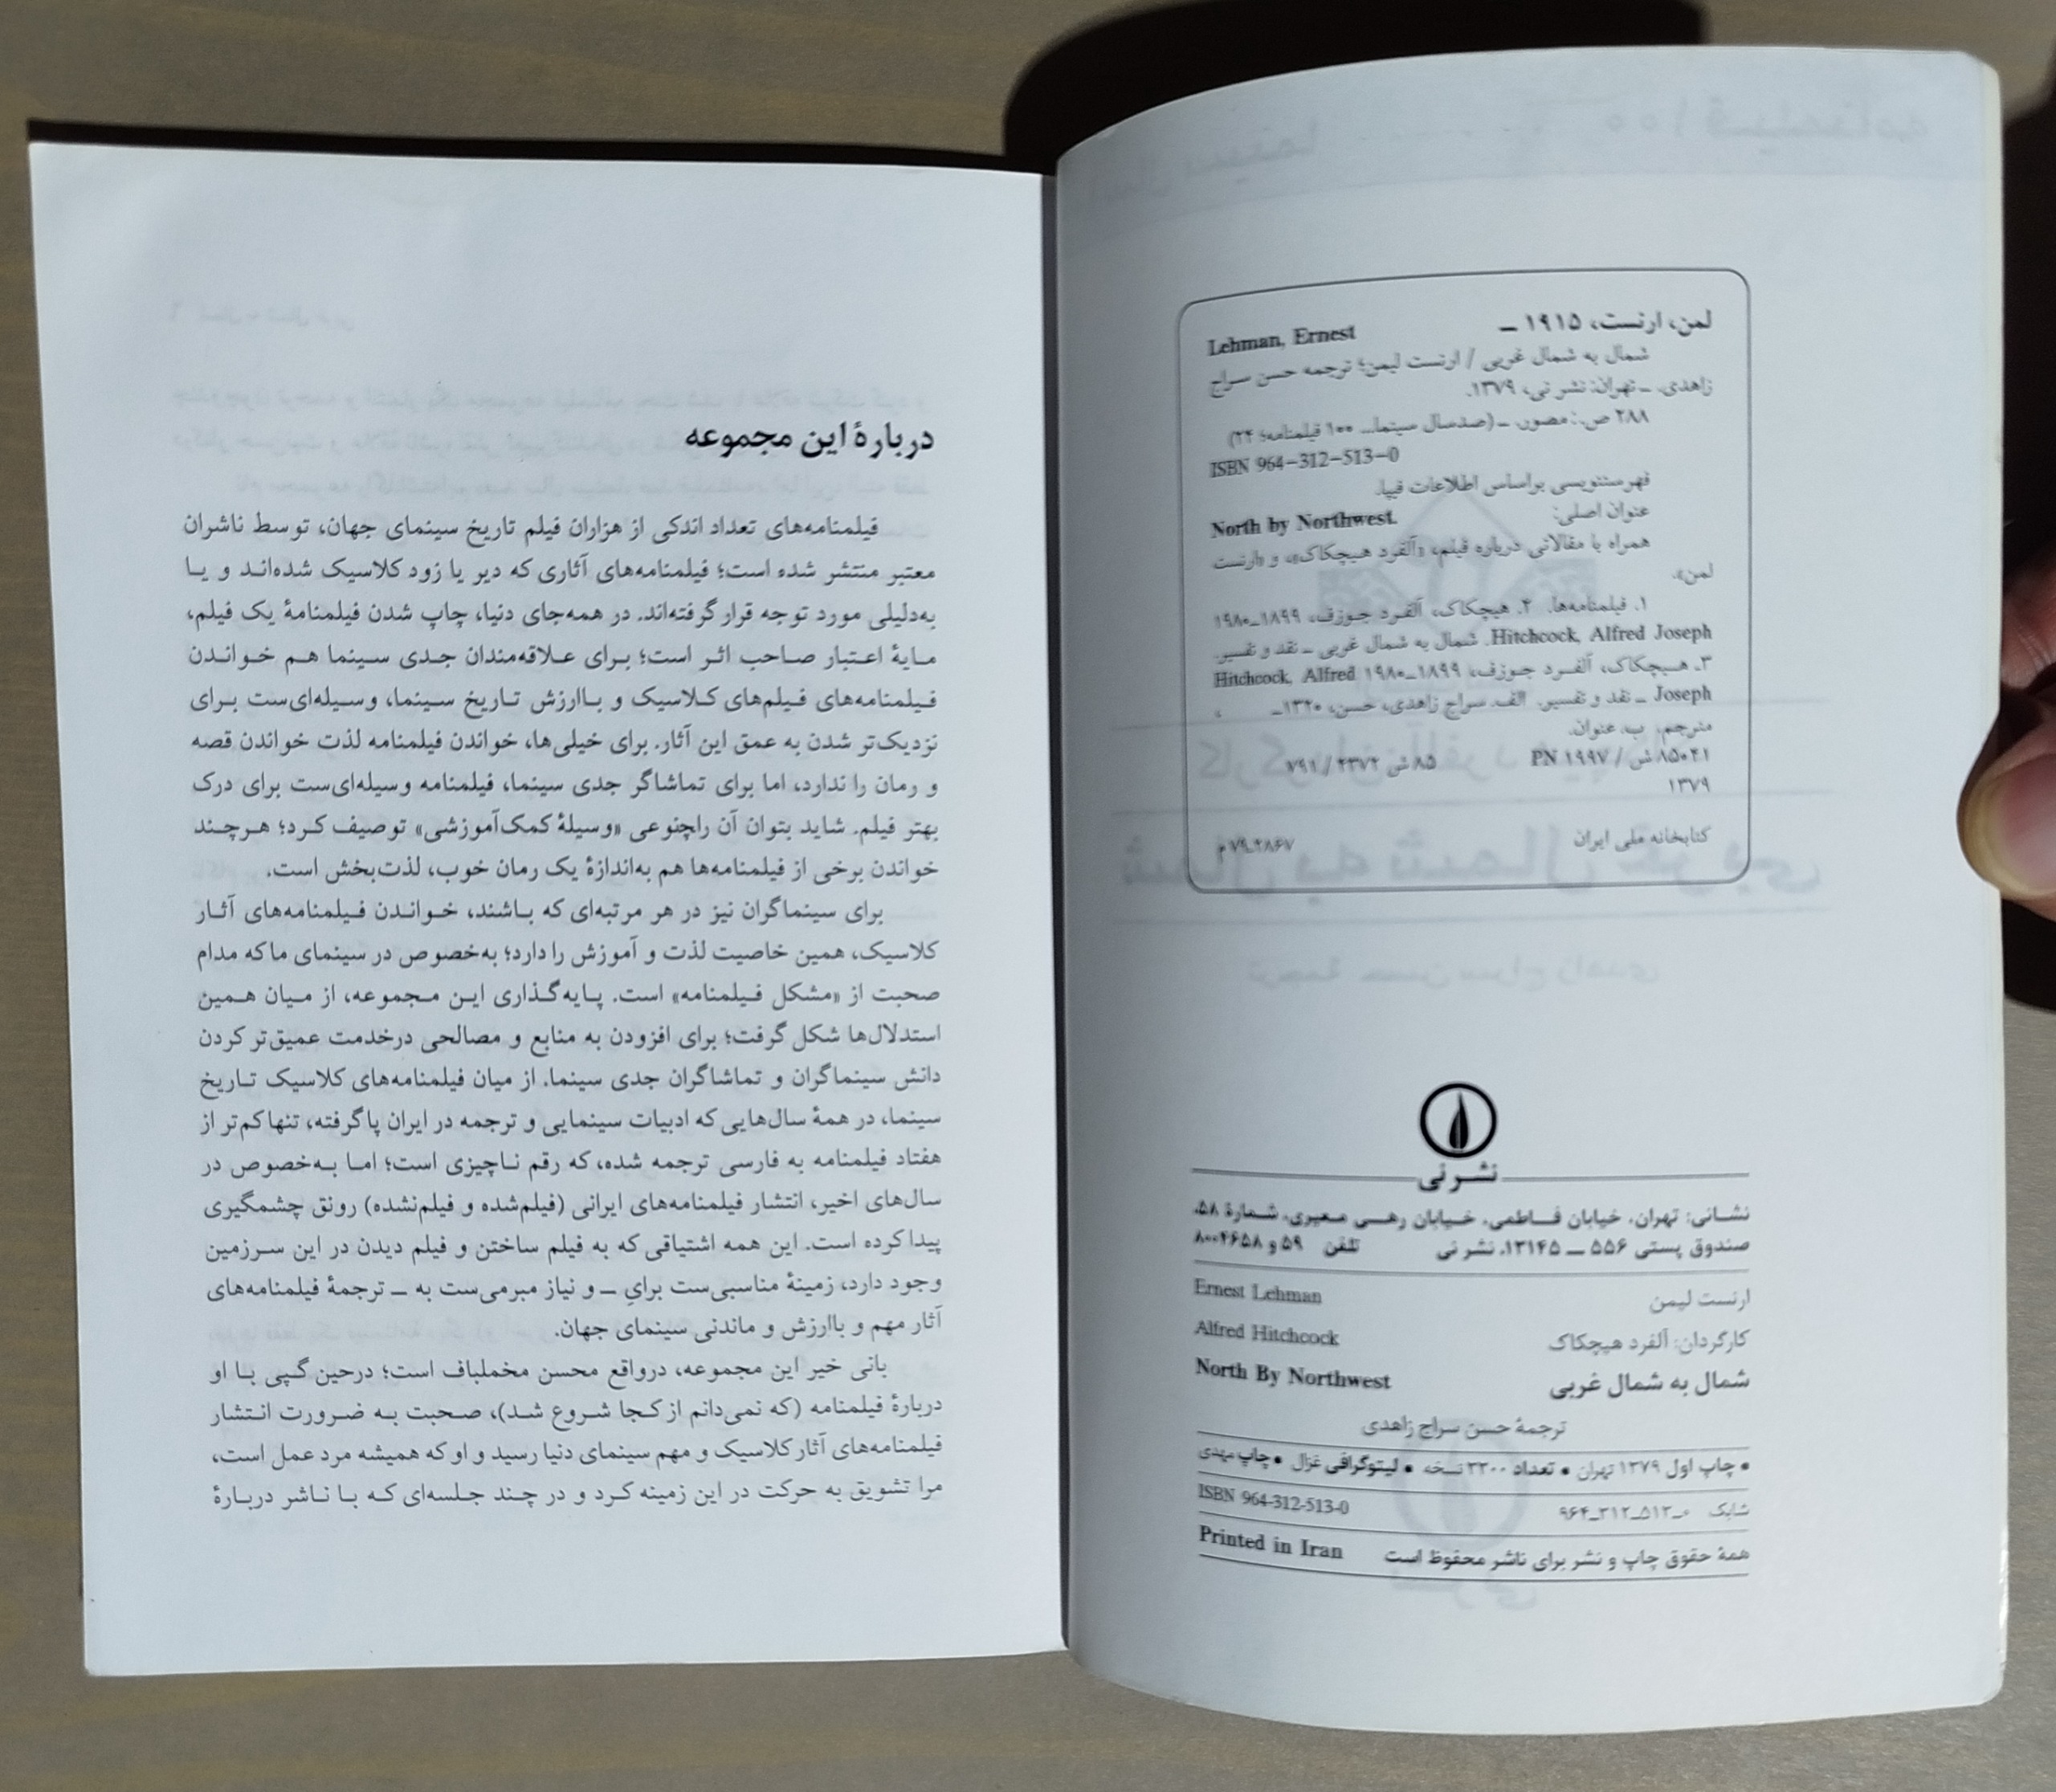 لمن، ارنست، ۱۹۱۵ ـ Lehman, Ernest
شمال به شمال غربی / ارنست لیمن؛ ترجمه حسن سراج
زاهدی. ـ تهران: نشر نی، ۱۳۷۹.
۲۸۸ ص.: مصور. ـ (صدسال سینما... ۱۰۰ فیلمنامه؛ ۲۴)
ISBN 964-312-513-0
فهرستنویسی براساس اطلاعات فیپا.
عنوان اصلی: North by Northwest.
همراه با مقالاتی درباره فیلم، «آلفرد هیچکاک»، و «ارنست
لمن».
۱. فیلمنامه‌ها. ۲. هیچکاک، آلفرد جوزف، ۱۸۹۹ـ۱۹۸۰
Hitchcock, Alfred Joseph. شمال به شمال غربی ـ نقد و تفسیر.
۳. هیچکاک، آلفرد جوزف، ۱۸۹۹ـ۱۹۸۰ Hitchcock, Alfred
Joseph ـ نقد و تفسیر. الف. سراج زاهدی، حسن، ۱۳۲۰ـ ،
مترجم. ب. عنوان.
۸۵۰۴۱ش / PN ۱۹۹۷ ۸۵ش ۲۳۷۲ / ۷۹۱
۱۳۷۹
کتابخانه ملی ایران ۲۸۶۷ـ۷۹م
نشر نی
نشانی: تهران، خیابان فاطمی، خیابان رهی معیری، شمارهٔ ۵۸،
صندوق پستی ۵۵۶ ـ ۱۳۱۴۵، نشر نی تلفن ۵۹ و ۸۰۰۴۶۵۸
ارنست لیمن Ernest Lehman
کارگردان: آلفرد هیچکاک Alfred Hitchcock
شمال به شمال غربی North By Northwest
ترجمهٔ حسن سراج زاهدی
• چاپ اول ۱۳۷۹ تهران • تعداد ۳۳۰۰ نسخه • لیتوگرافی غزال • چاپ مهدی
شابک ۰ـ۵۱۳ـ۳۱۲ـ۹۶۴ ISBN 964-312-513-0
همهٔ حقوق چاپ و نشر برای ناشر محفوظ است Printed in Iran
دربارهٔ این مجموعه
فیلمنامه‌های تعداد اندکی از هزاران فیلم تاریخ سینمای جهان، توسط ناشران
معتبر منتشر شده است؛ فیلمنامه‌های آثاری که دیر یا زود کلاسیک شده‌اند و یا
به‌دلیلی مورد توجه قرار گرفته‌اند. در همه‌جای دنیا، چاپ شدن فیلمنامهٔ یک فیلم،
مایهٔ اعتبار صاحب اثر است؛ برای علاقه‌مندان جدی سینما هم خواندن
فیلمنامه‌های فیلم‌های کلاسیک و باارزش تاریخ سینما، وسیله‌ای‌ست برای
نزدیک‌تر شدن به عمق این آثار. برای خیلی‌ها، خواندن فیلمنامه لذت خواندن قصه
و رمان را ندارد، اما برای تماشاگر جدی سینما، فیلمنامه وسیله‌ای‌ست برای درک
بهتر فیلم. شاید بتوان آن راچنوعی «وسیلهٔ کمک‌آموزشی» توصیف کرد؛ هرچند
خواندن برخی از فیلمنامه‌ها هم به‌اندازهٔ یک رمان خوب، لذت‌بخش است.
برای سینماگران نیز در هر مرتبه‌ای که باشند، خواندن فیلمنامه‌های آثار
کلاسیک، همین خاصیت لذت و آموزش را دارد؛ به‌خصوص در سینمای ما که مدام
صحبت از «مشکل فیلمنامه» است. پایه‌گذاری این مجموعه، از میان همین
استدلال‌ها شکل گرفت؛ برای افزودن به منابع و مصالحی درخدمت عمیق‌تر کردن
دانش سینماگران و تماشاگران جدی سینما. از میان فیلمنامه‌های کلاسیک تاریخ
سینما، در همهٔ سال‌هایی که ادبیات سینمایی و ترجمه در ایران پاگرفته، تنها کم‌تر از
هفتاد فیلمنامه به فارسی ترجمه شده، که رقم ناچیزی است؛ اما به‌خصوص در
سال‌های اخیر، انتشار فیلمنامه‌های ایرانی (فیلم‌شده و فیلم‌نشده) رونق چشمگیری
پیدا کرده است. این همه اشتیاقی که به فیلم ساختن و فیلم دیدن در این سرزمین
وجود دارد، زمینهٔ مناسبی‌ست برایِ ـ و نیاز مبرمی‌ست به ـ ترجمهٔ فیلمنامه‌های
آثار مهم و باارزش و ماندنی سینمای جهان.
بانی خیر این مجموعه، درواقع محسن مخملباف است؛ درحین گپی با او
دربارهٔ فیلمنامه (که نمی‌دانم از کجا شروع شد)، صحبت به ضرورت انتشار
فیلمنامه‌های آثار کلاسیک و مهم سینمای دنیا رسید و او که همیشه مرد عمل است،
مرا تشویق به حرکت در این زمینه کرد و در چند جلسه‌ای که با ناشر دربارهٔ